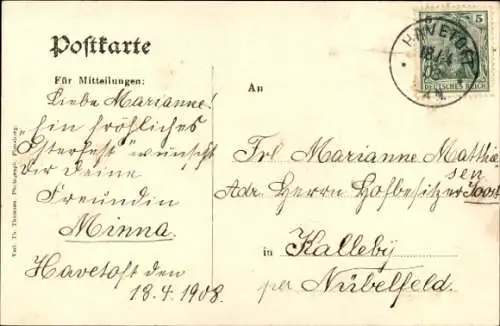 Postkarte
Für Mitteilungen:
Liebe Marianne!
Ein fröhliches
"Osterfest" wünscht
Dir Deine
Freundin
Minna.
Havetoft den
18.4.1908.
An
Frl Marianne Matthie
sen
Adr. Herrn Hofbesitzer Joost
in Kalleby
per Nübelfeld.
5 5
HAVETOFT
DEUTSCHES REICH
Verl. Th. Thomsen